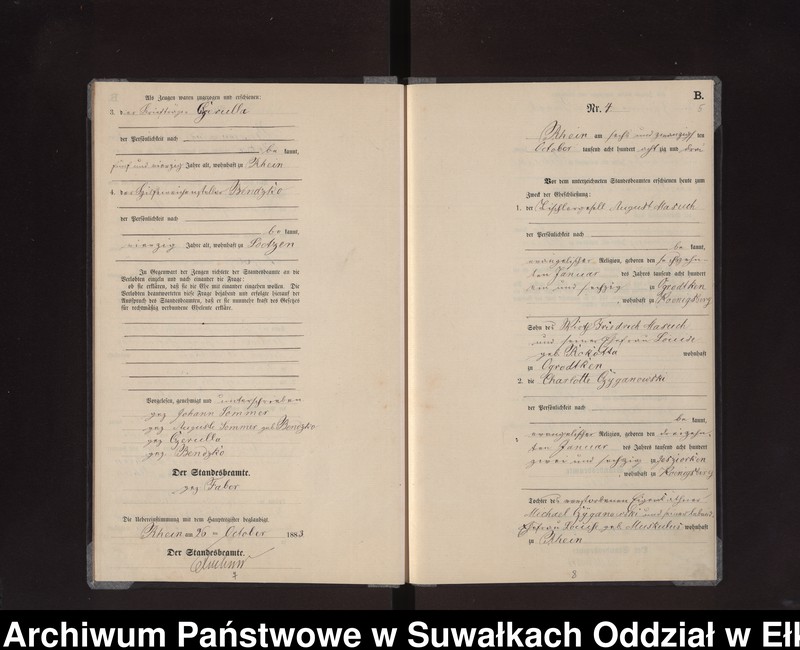 Als Zeugen waren zugezogen und erschienen:
3. der Briefträger Czeriella
der Persönlichkeit nach
be kannt,
fünf und vierzig Jahre alt, wohnhaft zu Rhein
4. der Bendzko
der Persönlichkeit nach
be kannt,
vierzig Jahre alt, wohnhaft zu
In Gegenwart der Zeugen richtete der Standesbeamte an die
Verlobten einzeln und nach einander die Frage:
ob sie erklären, daß sie die Ehe mit einander eingehen wollen. Die
Verlobten beantworteten diese Frage bejahend und erfolgte hierauf der
Ausspruch des Standesbeamten, daß er sie nunmehr kraft des Gesetzes
für rechtmäßig verbundene Eheleute erkläre.
Vorgelesen, genehmigt und unterschrieben
gez Johann Sommer
gez Auguste Sommer geb Bendzko
gez Czeriella
gez Bendzko
Der Standesbeamte.
gez Faber
Die Uebereinstimmung mit dem Hauptregister beglaubigt
Rhein am 26 ten October 1883
Der Standesbeamte.
7
B.
5
Nr. 4
Rhein am sechs und zwanzigsten
October tausend acht hundert acht zig und drei
Vor dem unterzeichneten Standesbeamten erschienen heute zum
Zweck der Eheschließung:
1. der Tischlergesell August Masuch
der Persönlichkeit nach
be kannt,
evangelischer Religion, geboren den sechszehn-
ten Januar des Jahres tausend acht hundert
ein und sechzig zu Ogrodtken
, wohnhaft zu Koenigsberg
Sohn des Wirth Friedrich Masuch
und seiner Ehefrau Louise
geb. Rokotta wohnhaft
zu Ogrodtken
2. die Charlotte Czyganowski
der Persönlichkeit nach
be kannt,
evangelischer Religion, geboren den dreizehn-
ten Januar des Jahres tausend acht hundert
zwei und sechzig
, wohnhaft zu Koenigsberg
Tochter des verstorbenen Eigenkäthner
Michael Czyganowski und seiner
Ehefrau Louise geb wohnhaft
zu Rhein
8
Archiwum Państwowe w Suwałkach Oddział w Ełk